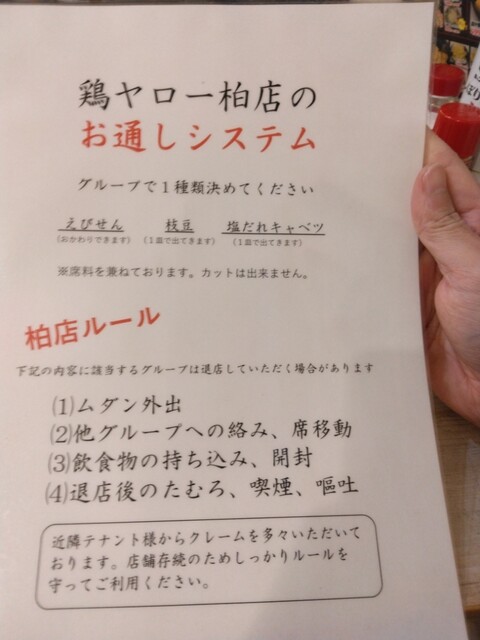 鶏ヤロー柏店の
お通しシステム
グループで１種類決めてください
えびせん 枝豆 塩だれキャベツ
(おかわりできます) (１皿で出てきます) (１皿で出てきます)
※席料を兼ねております。カットは出来ません。
柏店ルール
下記の内容に該当するグループは退店していただく場合があります
(1)ムダン外出
(2)他グループへの絡み、席移動
(3)飲食物の持ち込み、開封
(4)退店後のたむろ、喫煙、嘔吐
近隣テナント様からクレームを多々いただいて
おります。店舗存続のためしっかりルールを
守ってご利用ください。